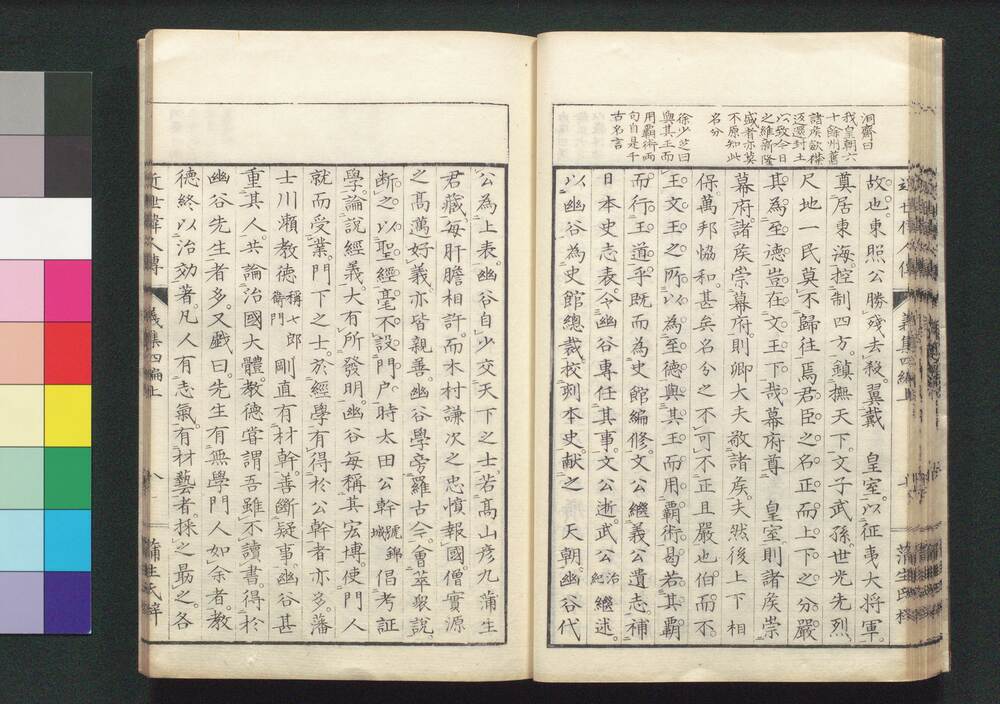 洞齋曰
我皇朝六
十餘州舊
諸矦歛襟
返還封土
以致今日
之維新隆
盛者亦莫
不原知此
名分
徐少芝曰
與其王而
用覇術兩
句自是千
古名言
故也東照公勝殘去殺翼戴 皇室以征夷大将軍
奠居東海控制四方鎮撫天下文子武孫世光先烈
尺地一民莫不歸往焉君臣之名正而上下之分嚴
其為至德豈在文王下哉幕府尊 皇室則諸矦崇
幕府諸矦崇幕府則卿大夫敬諸矦夫然後上下相
保萬邦協和甚矣名分之不可不正且嚴也伯而不
王文王之所以為至德與其王而用覇術曷若其覇
而行王道乎既而為史館編修文公繼義公遺志補
日本史志表令幽谷專任其事文公逝武公治紀繼述
以幽谷為史館總裁挍刻本史献之 天朝幽谷代
公為上表幽谷自少交天下之士若髙山彦九蒲生
君藏每肝膽相許而木村謙次之忠憤報國僧實源
之髙邁好義亦皆親善幽谷學旁羅古今會萃衆說
断之以聖經毫不設門户時太田公幹號錦城倡考証
學論說經義大有所發明幽谷每稱其宏博使門人
就而受業門下之士於經學有得於公幹者亦多藩
士川瀨教德稱七郎衛門剛直有材幹善斷疑事幽谷甚
重其人共論治國大體教德嘗謂吾雖不讀書得於
幽谷先生者多又戲曰先生有無學門人如余者教
德終以治効著凡人有志氣有材藝者採之最之各
近世偉人傳 義集四編上 八 蒲生氏梓